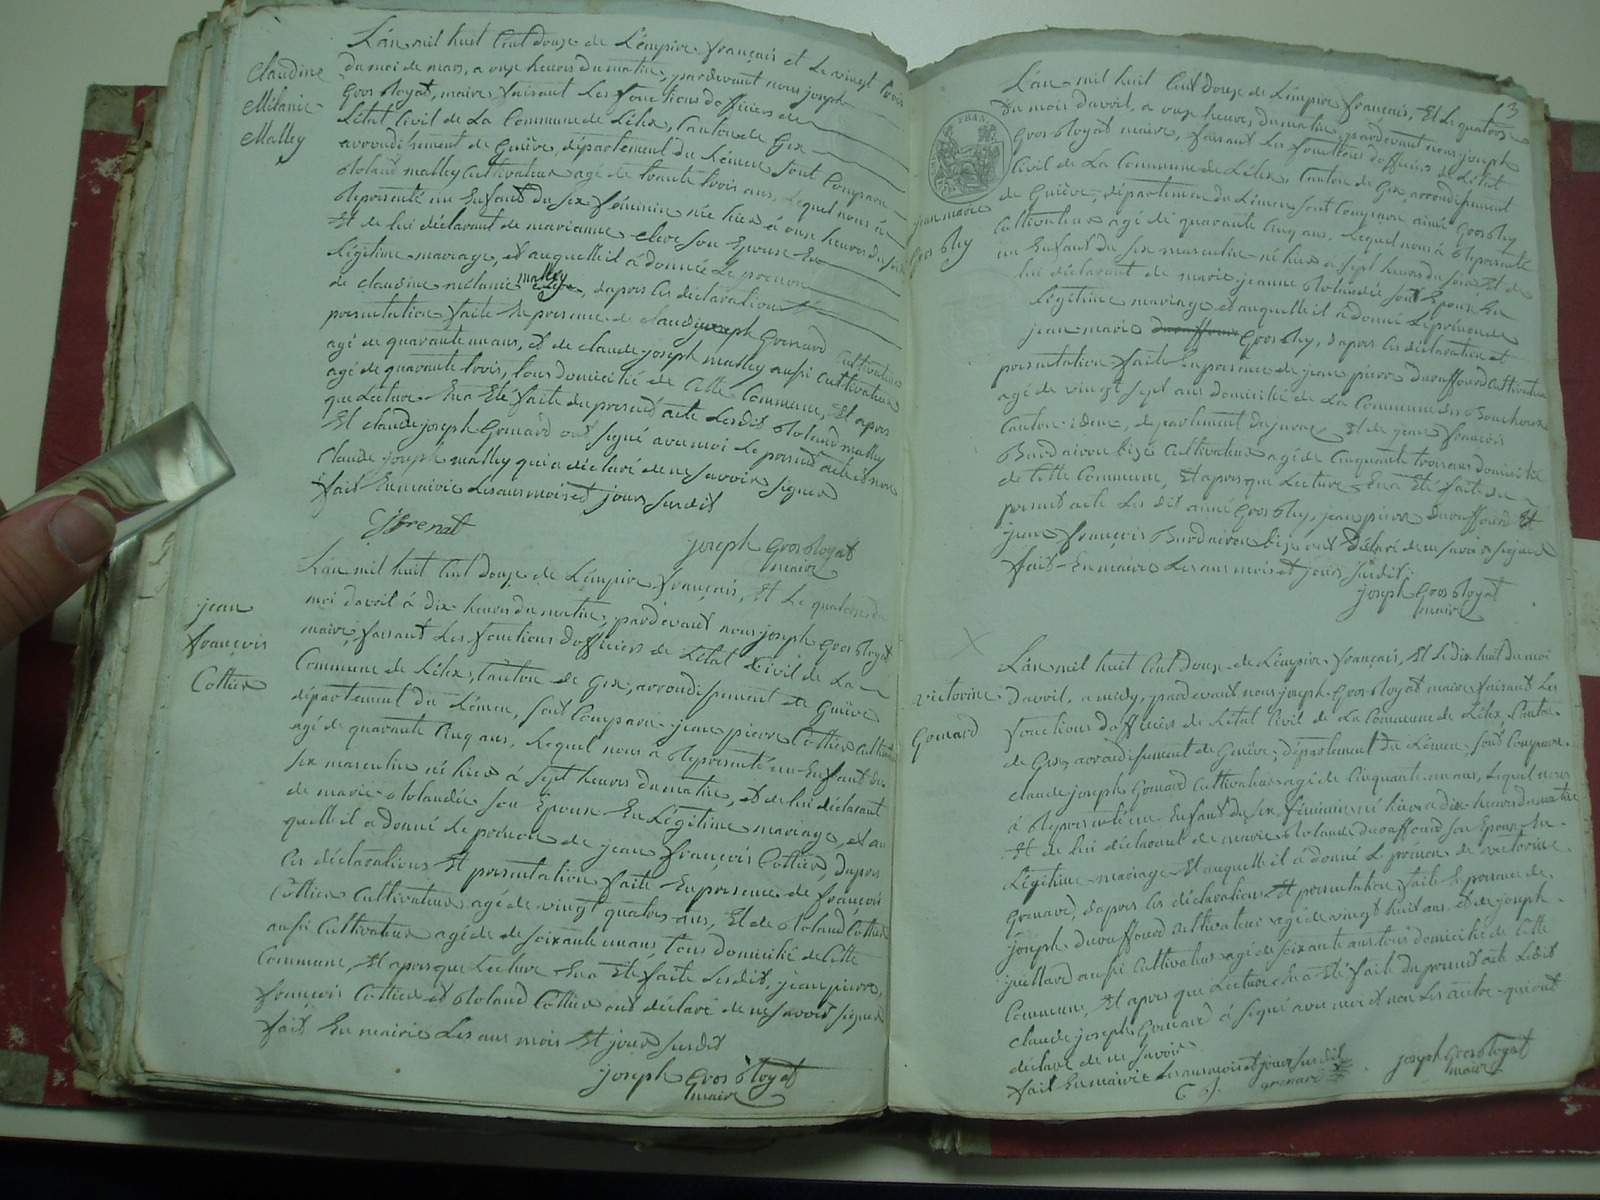 Claudine
Mélanie
Malley
L'an mil huit cent douze de L'émpire français et Le vingt trois
du moi de mars, a onze heures du matin, pardevant nous joseph
Gros Royat, maire, faisant Les fonctions d'officiers de
L'état Civil de La Commune de Lélex, Canton de Gex
arrondissement de Genève, département du Léman sont Comparu
Roland malley Cultivateur agé de trante trois ans, Lequel nous à
Représenté un Enfant du sex féminin née hier à onze heures du soir
Et de lui déclarant de marianne son Epouse En
Légitime mariage, et auquelle il à donnée Le prénon
de claudine mélanie malley, dapres Ces déclarations Et
présentation faite En présence de Grenard Cultivateur
agé de quarante un ans, Et de claude joseph malley aussi Cultivateur
agé de quarante trois, tous domicilié de Cette Commune, Et apres
que Lecture En a Eté faite du présent acte Lesdits Roland malley
Et claude joseph Grenard ont signé avec moi Le présent acte et non
Claude joseph malley qui a déclaré de ne savoir signer
fait En mairie Les ans mois et jour susdit
joseph Gros Royat
maire
jean
françois
Cottier
L'an mil huit Cent douze de L'émpire français, Et Le quatorze du
moi d'avril à dix heures du matin, pardevant nous joseph Gros Royat
maire, faisant Les fonctions d'officiers de L'état Civil de La
Commune de Lélex, Canton de Gex, arrondissement de Genève
département du Léman, sont Comparu jean pierre Cottier Cultivateur
agé de quarante Cinq ans, Lequel nous à Représenté un Enfant du
sex masculin né hier à sept heures du matin, et de lui déclarant
de marie Rolandée son Epouse En Légitime mariage, et au
quelle il a donné Le prénon de jean françois Cottier, dapres
Ces déclarations Et présentation faite En présence de françois
Cottier Cultivateur agé de vingt quatre ans, Et de Roland Cottier
aussi Cultivateur agé de soixante un ans, tous domicilié de Cette
Commune, Et apres que Lecture En a Eté faite Lesdits, jean pierre,
françois Cottier et Roland Cottier ont déclaré de ne savoir signer
fait En mairie Les ans mois Et jour susdit
joseph Gros Royat
maire
13
jean marie
Gros
L'an mil huit Cent douze de L'émpire français, Et Le quatorze
du mois d'avril, a onze heures du matin, pardevant nous joseph
Gros Royat maire, faisant Les fonctions d'officiers de L'état
Civil de La Commune de Lélex, Canton de Gex, arrondissement
de Genève, département du Léman sont Comparu aimé Gros
Cultivateur agé de quarante Cinq ans. Lequel nous à Représenté
un Enfant du sex masculin né hier a sept heures du soir, Et de
lui déclarant de marie jeanne Rolandée son Epouse En
Légitime mariage et auquelle il à donné Le prénon de
jean marie Gros, dapres Ces déclaration et
présentation faite En présence de jean pierre Duraffourd Cultivateur
agé de vingt sept ans domicilié de La Commune des Bouchoux
Canton idem, département du jura, Et de jean françois
Cultivateur agé de Cinquante trois ans domicilié
de Cette Commune, Et apres que Lecture En a Eté faite du
présent acte Les dit aimé Gros, jean pierre Duraffourd Et
jean françois ont déclaré de ne savoir signer
fait En mairie Les ans mois et jour susdit.
joseph Gros Royat
maire
victorine
Grenard
L'an mil huit Cent douze de L'émpire français, Et Le dix huit du moi
d'avril, a midy, pardevant nous joseph Gros Royat maire faisant Les
fonctions d'officiers de L'état Civil de La Commune de Lélex, Canton
de Gex, arrondissement de Genève, département du Léman, sont Comparu
claude joseph Grenard Cultivateur agé de Cinquante un ans, Lequel nous
à Représenté un Enfant du sex féminin né hier a dix heures du matin
Et de lui déclarant de marie Rolande duraffourd son Epouse En
Légitime mariage Et auquelle il a donné Le prénon de victorine
Grenard, dapres Ces déclarations Et présentation faite En présence de
joseph Duraffourd Cultivateur agé de vingt huit ans, et de joseph
juillard aussi Cultivateur agé de soixante ans tous domicilié de Cette
Commune, Et apres que Lecture En a Eté faite du présent acte Ledit
claude joseph Grenard à signé avec moi et non Les autre qui ont
déclaré de ne savoir
fait En mairie Les ans mois et jour susdit
C J. grenard
joseph Gros Royat
maire